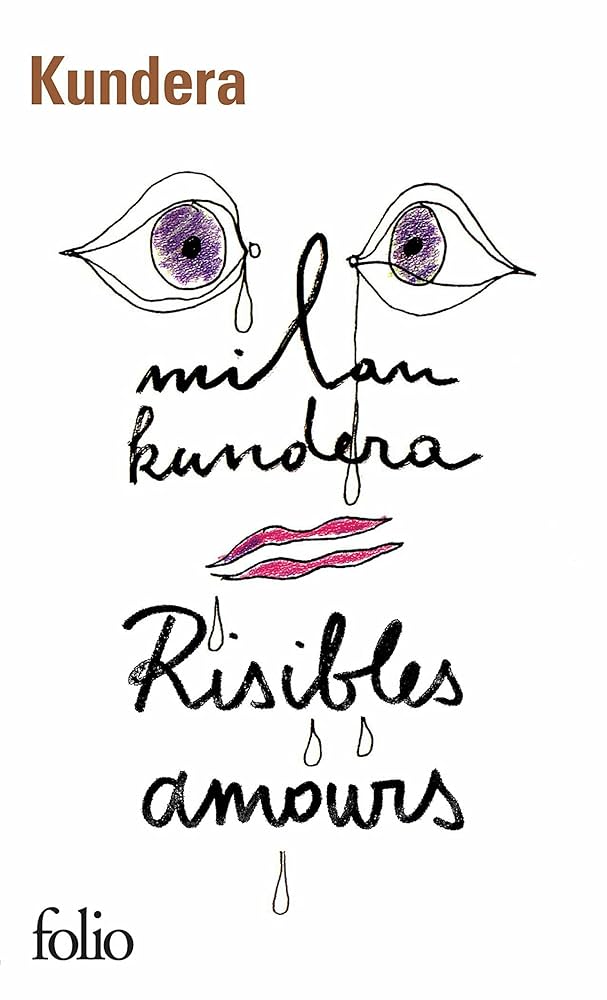 Kundera
milan
kundera
Risibles
amours
folio